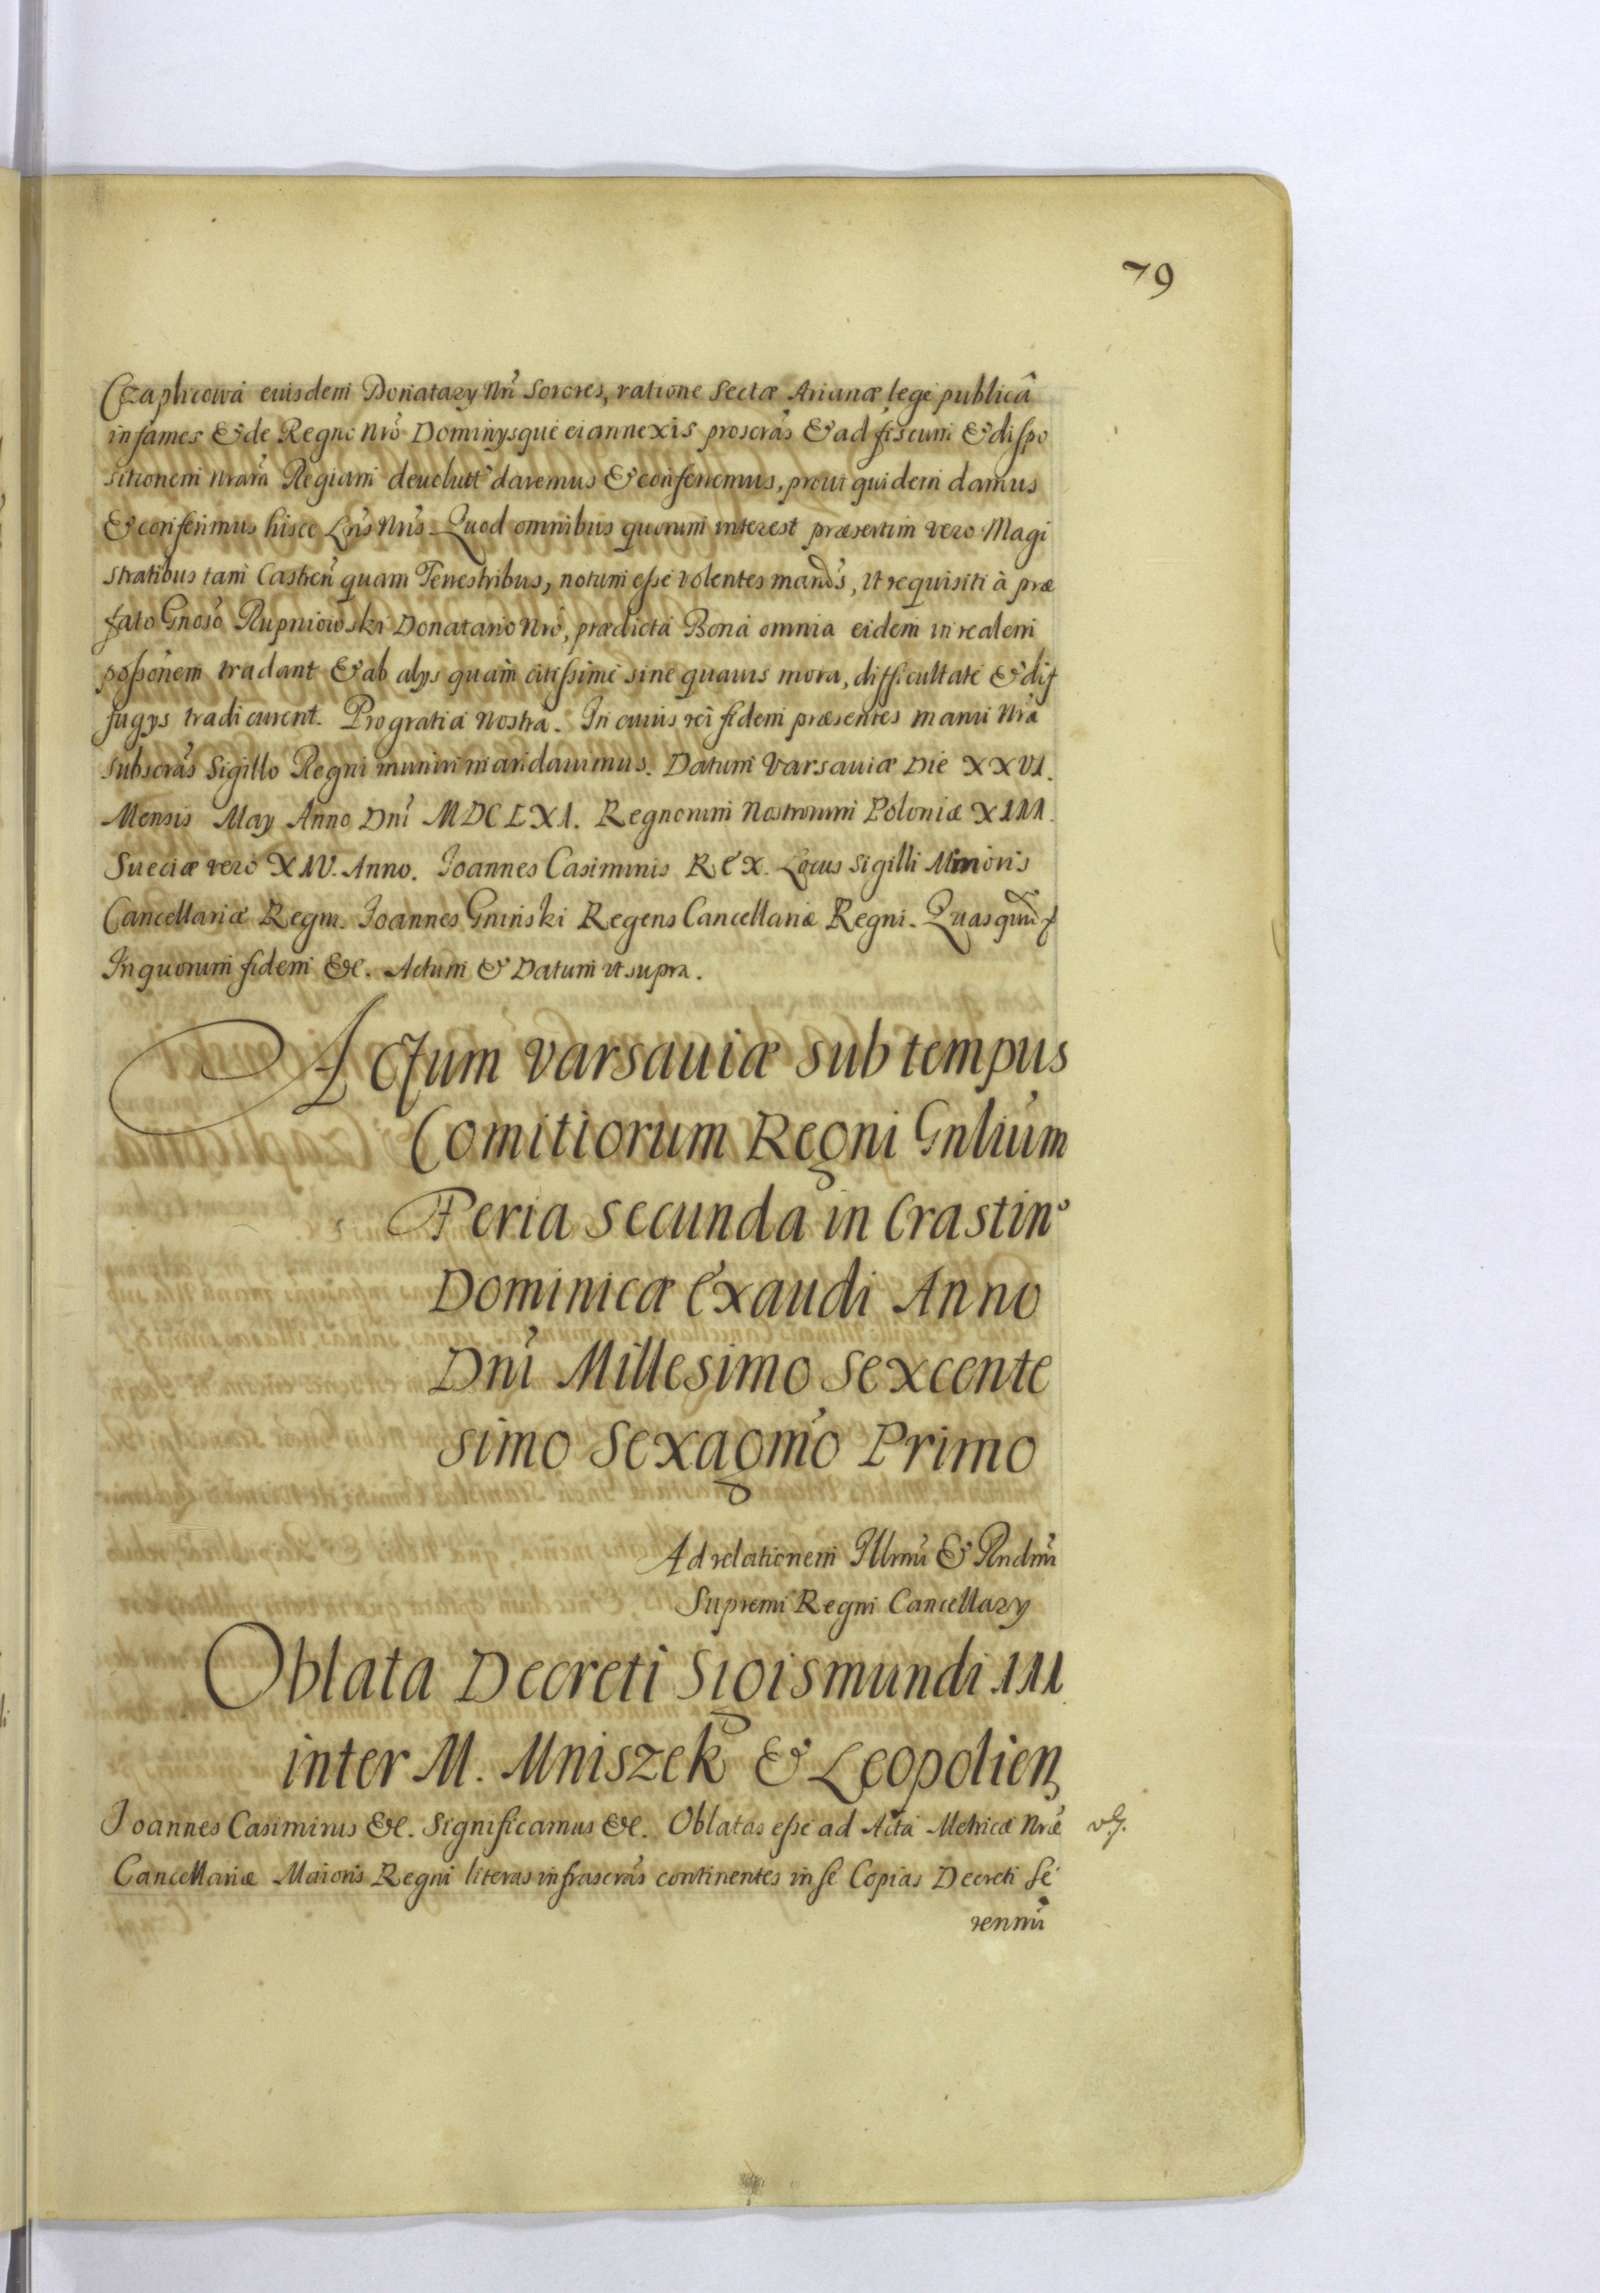 79
Czaplicowa eiusdem Donatary Nri Sorores, ratione Sectæ Arianæ lege publicâ
infames & de Regno Nro Dominysque ei annexis proscras & ad fiscum & dispo
sitionem nram Regiam deuolutt daremus & conferemus, prout quidem damus
& conferimus hisce Lris Nris. Quod omnibus quorum interest præsertim vero Magi
stratibus tam Castren quam Terrestribus, notum esse volentes mandˢ, vt requisiti à præ
fato Gnoso Rupniowski Donatario Nro, prædicta Bona omnia eidem in realem
possonem tradant & ab alys quam citissime sine quauis mora, difficultate & dif
fugys tradi curent. Pro gratia Nostra. In cuius rei fidem præsentes manu Nra
subscras Sigillo Regni muniri mandauimus. Datum Varsauiæ Die XXVI.
Mensis May Anno Dni MDCLXI. Regnorum Nostrorum Poloniæ XIII.
Sueciæ vero XIV. Anno. Joannes Casimirus Rex. Locus Sigilli Minoris
Cancellariæ Regni. Joannes Gniński Regens Cancellariæ Regni. Quas quid
In quorum fidem &c. Actum & Datum vt supra.
Actum Varsauiæ sub tempus
Comitiorum Regni Gnlium
Feria Secunda in Crastino
Dominicæ Exaudi Anno
Dni Millesimo Sexcente
simo Sexagmo Primo
Ad relationem Illmi & Rndmi
Supremi Regni Cancellary
Oblata Decreti Sigismundi III
inter M. Mniszek & Leopolien
Joannes Casimirus &c. Significamus &c. Oblatas esse ad Acta Metricæ Nræ
Cancellariæ Maioris Regni literas infrascras continentes in se Copias Decreti Se
rennmi